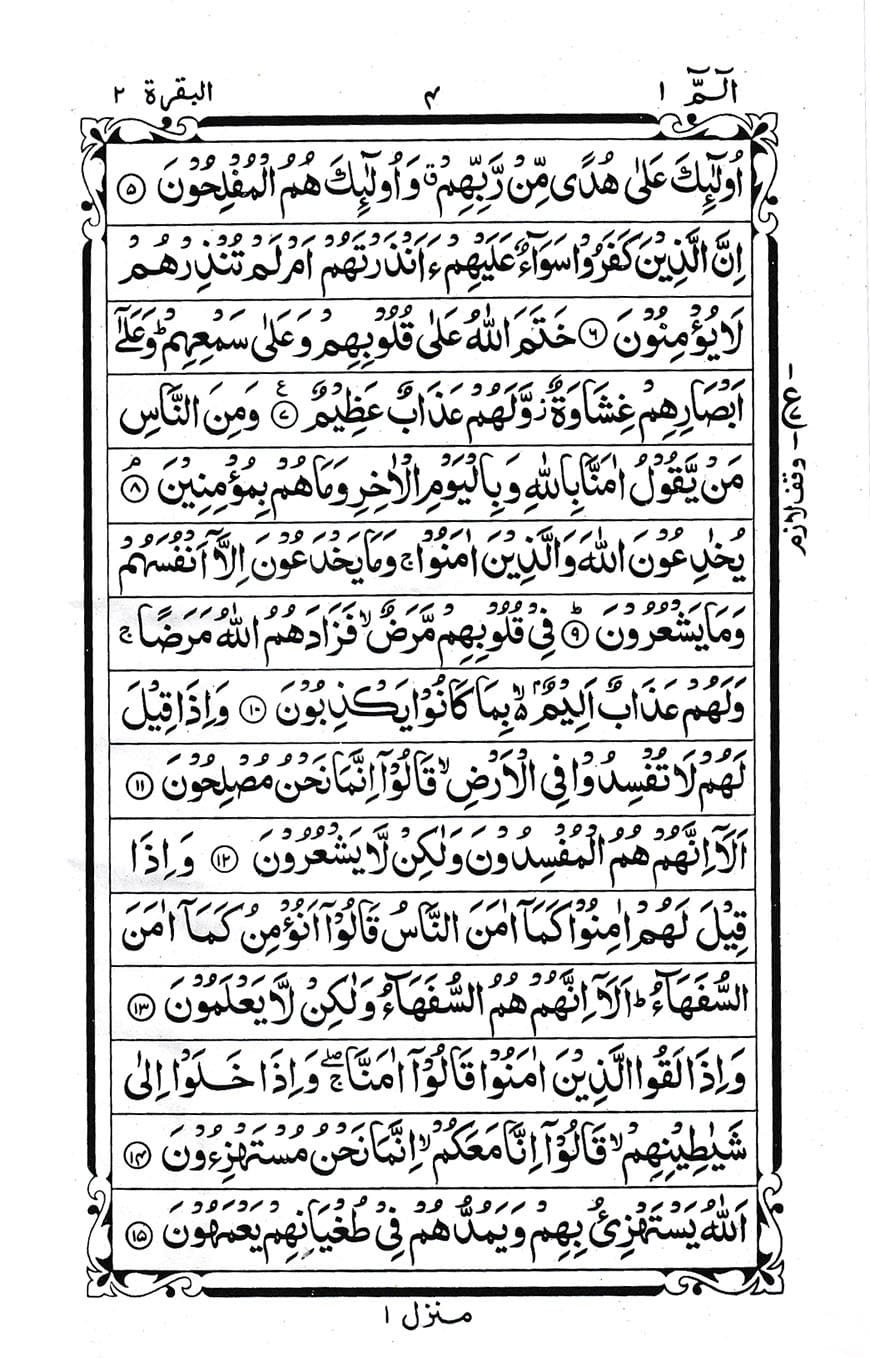 الٓمّٓ ١
۴
البقرة ٢
اُولٰٓئِكَ عَلٰى هُدًى مِّنْ رَّبِّهِمْ ۗ وَاُولٰٓئِكَ هُمُ الْمُفْلِحُوْنَ ۝۵
اِنَّ الَّذِيْنَ كَفَرُوْا سَوَآءٌ عَلَيْهِمْ ءَاَنْذَرْتَهُمْ اَمْ لَمْ تُنْذِرْهُمْ
لَا يُؤْمِنُوْنَ ۝۶ خَتَمَ اللّٰهُ عَلٰى قُلُوْبِهِمْ وَعَلٰى سَمْعِهِمْ ؕ وَعَلٰٓى
اَبْصَارِهِمْ غِشَاوَةٌ ز وَّلَهُمْ عَذَابٌ عَظِيْمٌ ۝۷ ع وَمِنَ النَّاسِ
مَنْ يَّقُوْلُ اٰمَنَّا بِاللّٰهِ وَبِالْيَوْمِ الْاٰخِرِ وَمَا هُمْ بِمُؤْمِنِيْنَ ۝۸ۘ
يُخٰدِعُوْنَ اللّٰهَ وَالَّذِيْنَ اٰمَنُوْا ج وَمَا يَخْدَعُوْنَ اِلَّاۤ اَنْفُسَهُمْ
وَمَا يَشْعُرُوْنَ ۝۹ؕ فِيْ قُلُوْبِهِمْ مَّرَضٌ ۙ فَزَادَهُمُ اللّٰهُ مَرَضًا ج
وَلَهُمْ عَذَابٌ اَلِيْمٌ ۢ ۙ۬ بِمَا كَانُوْا يَكْذِبُوْنَ ۝۱۰ وَاِذَا قِيْلَ
لَهُمْ لَا تُفْسِدُوْا فِى الْاَرْضِ ۙ قَالُوْۤا اِنَّمَا نَحْنُ مُصْلِحُوْنَ ۝۱۱
اَلَاۤ اِنَّهُمْ هُمُ الْمُفْسِدُوْنَ وَلٰكِنْ لَّا يَشْعُرُوْنَ ۝۱۲ وَاِذَا
قِيْلَ لَهُمْ اٰمِنُوْا كَمَاۤ اٰمَنَ النَّاسُ قَالُوْۤا اَنُؤْمِنُ كَمَاۤ اٰمَنَ
السُّفَهَآءُ ؕ اَلَاۤ اِنَّهُمْ هُمُ السُّفَهَآءُ وَلٰكِنْ لَّا يَعْلَمُوْنَ ۝۱۳
وَاِذَا لَقُوا الَّذِيْنَ اٰمَنُوْا قَالُوْۤا اٰمَنَّا ۖۚ وَاِذَا خَلَوْا اِلٰى
شَيٰطِيْنِهِمْ ۙ قَالُوْۤا اِنَّا مَعَكُمْ ۙ اِنَّمَا نَحْنُ مُسْتَهْزِءُوْنَ ۝۱۴
اَللّٰهُ يَسْتَهْزِئُ بِهِمْ وَيَمُدُّهُمْ فِيْ طُغْيَانِهِمْ يَعْمَهُوْنَ ۝۱۵
ع
وقف لازم
منزل ١